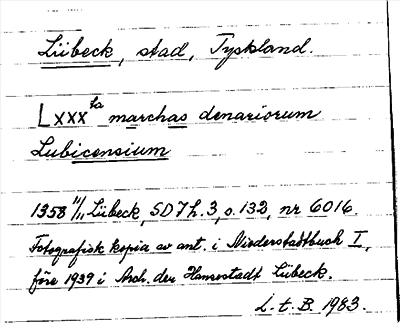 Lübeck, stad, Tyskland.
Lxxx ta marchas denariorum
Lubicensium
1358 11/11 Lübeck, SD 7 h. 3, s. 132, nr 6016.
Fotografisk kopia av ant. i Niederstadtbuch I,
före 1939 i Arch. der Hansestadt Lübeck.
L. t. B. 1983.